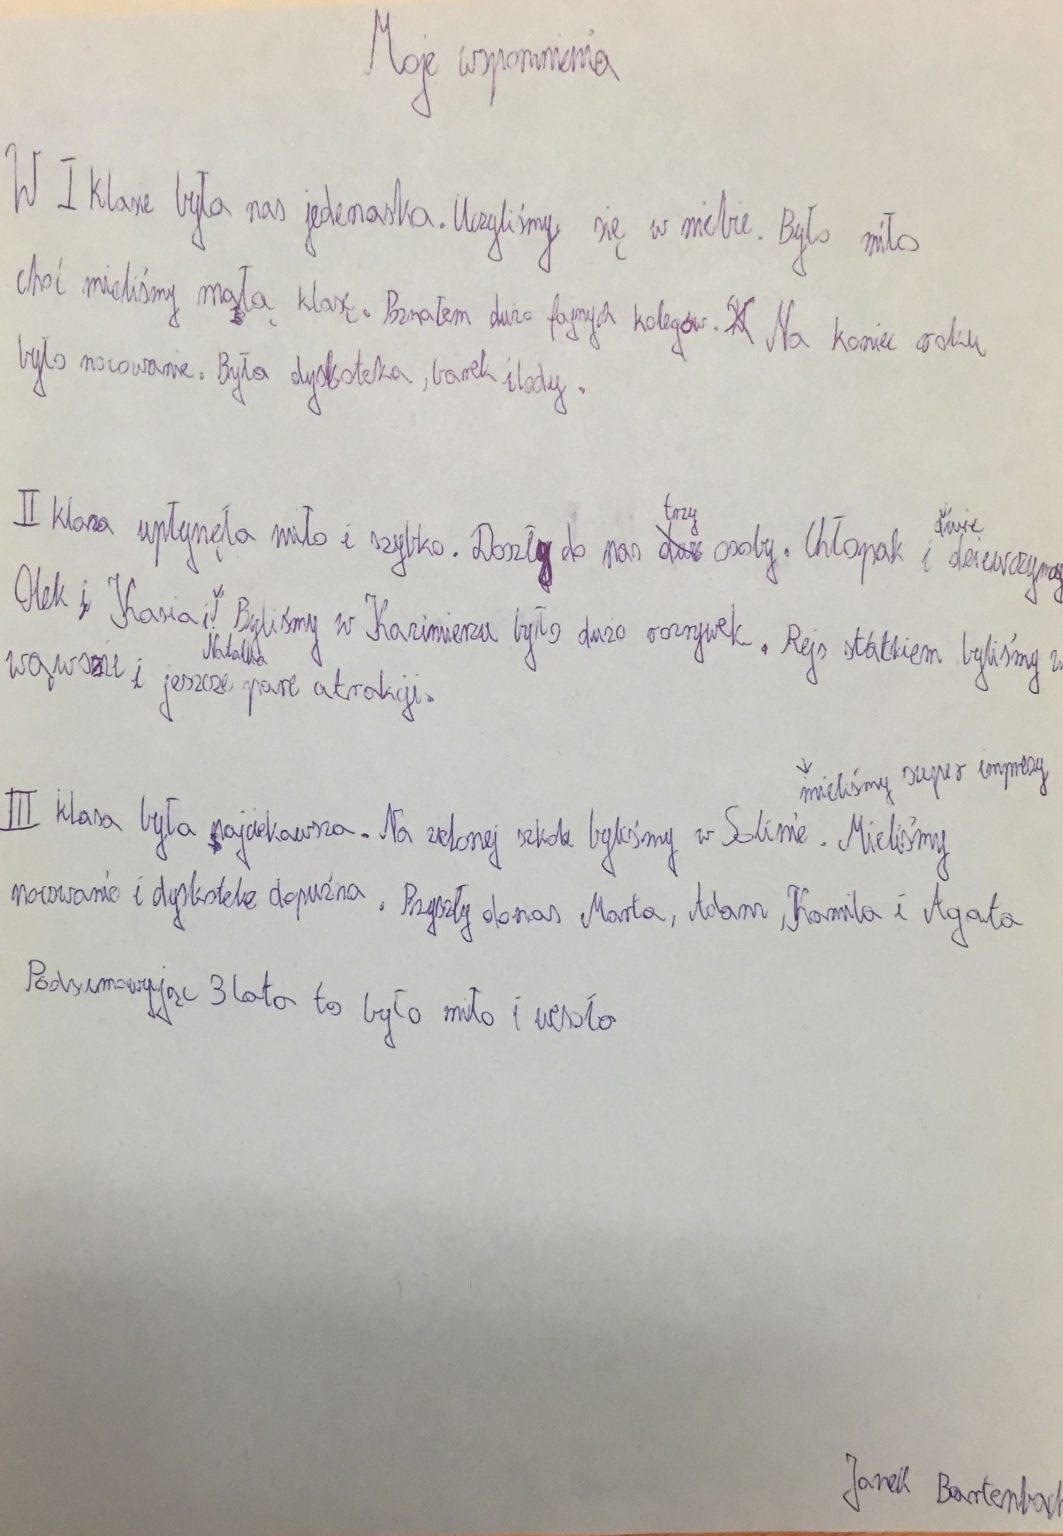 Moje wspomnienia
W I klasie była nas jedenastka. Uczyliśmy się w niebie. Było miło
choć mieliśmy małą klasę. Poznałem dużo fajnych kolegów. Na koniec roku
było nocowanie. Była dyskoteka, barek i lody.
II klasa upłynęła miło i szybko. Doszły do nas trzy osoby. Chłopak i dwie dziewczyny
Olek i Kasia i Natalka Byliśmy w Kazimierzu było dużo rozrywek. Rejs statkiem byliśmy w
wąwozie i jeszcze pare atrakcji.
mieliśmy super imprezy
III klasa była najciekawsza. Na zielonej szkole byliśmy w Solinie. Mieliśmy
nocowanie i dyskotekę dopuźna. Przyszły donas Marta, Adam, Kamila i Agata
Podsumowyjąc 3 lata to było miło i wesoło
Janek Bartenbach